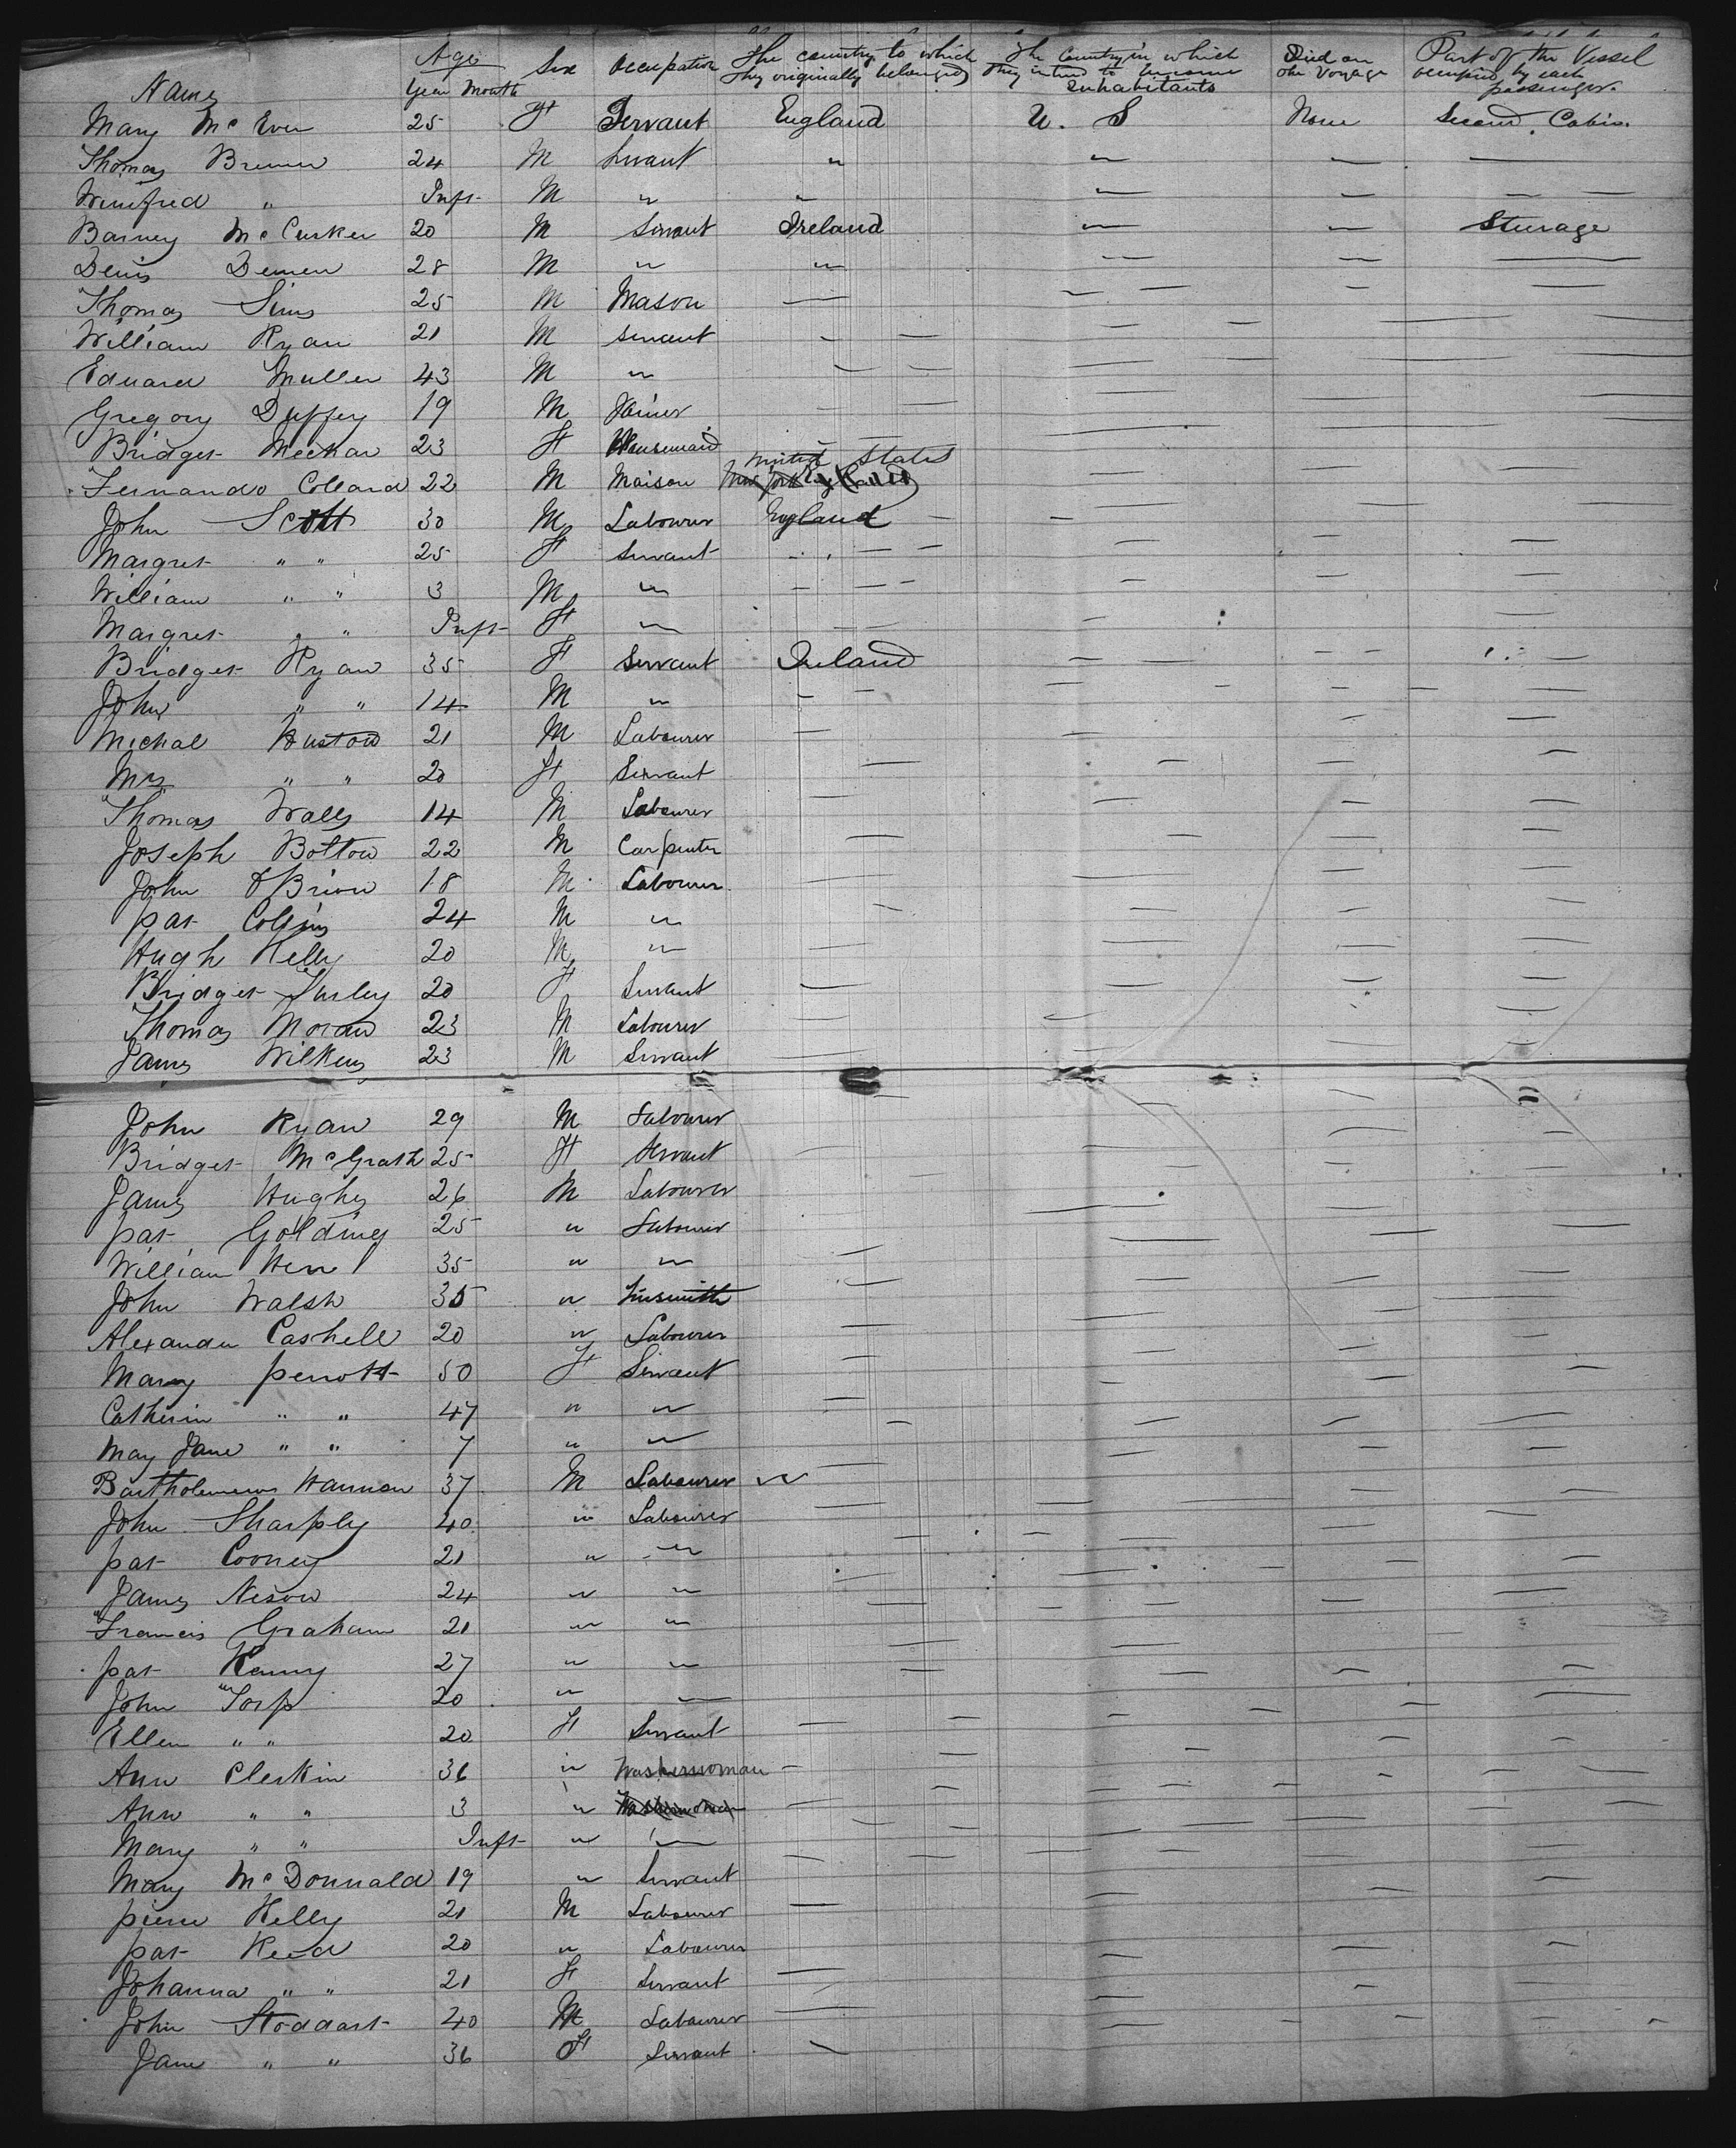 Name Age Year Month Sex Occupation The country to which they originally belonged The Country in which they intend to become Inhabitants Died on the Voyage Part of the Vessel occupied by each passenger.
Mary Mc Ever 25 F Servant England U. S None Second Cabin.
Thomas Bremer 24 M Servant " — — —
Winefred " Inft M " " — — — —
Barney Mc Cusker 20 M Servant Ireland — — Steerage
Denis 28 M " " — — —
Thomas Sims 25 M Mason — — — — —
William Ryan 21 M Servant — — — — —
Eduard Muller 43 M " — — — — —
Gregory Duffey 19 M Joiner — — — — —
Bridget Meehan 23 F Housemaid — — — — —
Fernando Collard 22 M Maison United States — — —
John Scott 30 M Labourer England — — — —
Margret " " 25 F Servant — — — — —
William " " 3 M " — — — — —
Margret " " Inft F " — — — — —
Bridget Ryan 35 F Servant Ireland — — — —
John " " 14 M " — — — — —
Michal 21 M Labourer — — — —
Mrs " " 20 F Servant — — — —
Thomas Walls 14 M Labourer — — — —
Joseph Bolton 22 M Carpenter — — — —
John O'Brien 18 M Labourer — — — —
Pat Collins 24 M " — — — —
Hugh Kelly 20 M " — — — —
Bridget 20 F Servant — — — —
Thomas Moran 23 M Labourer — — — —
James Wilkens 23 M Servant — — — —
John Ryan 29 M Labourer — — — —
Bridget Mc Grath 25 F Servant — — — —
James Hughes 26 M Labourer — — — —
Pat Golding 25 " Labourer — — — —
William 35 " " — — — —
John Walsh 35 " Tinsmith — — — —
Alexander Cashell 20 " Labourer — — — —
Mary Perrott 50 F Servant — — — —
Catherin " " 47 " " — — — —
May Jane " " 7 " " — — — —
Bartholemew Hannon 37 M Labourer " — — — —
John Sharply 40 " Labourer — — — —
Pat Cooney 21 " " — — — —
James Nixon 24 " " — — — —
Francis Graham 21 " " — — — —
Pat Kenny 27 " " — — — —
John Torp 20 " " — — — —
Ellen " " 20 F Servant — — — —
Ann Clerkin 36 " Washerwoman — — — —
Ann " " 3 " Washerwoman — — — —
Mary " " Inft " " — — — —
Mary Mc Donnald 19 " Servant — — — —
Pierce Kelly 21 M Labourer — — — —
Pat Reed 20 " Labourer — — —
Johanna " " 21 F Servant — — — —
John Stoddart 40 M Labourer — — — —
Jane " " 36 F Servant — — — —